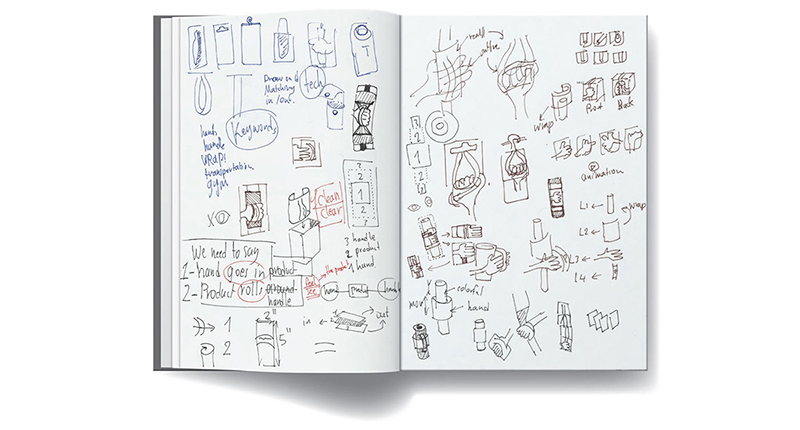 tech
Matching
in / our.
Keywords
hand
handle
WRAP!
transportation
gym
clean
clear
3
2
1
2
3
X
3 handle
2 product
1 hand
We need to say
1-hand goes in product
2-Product rolls around
handle
the product
hand
1
2
2"
5"
in
out
wrap
Front
Back
animation
3
2
1
2
L1
wrap
L2
L3
L4
colorful
hand
move